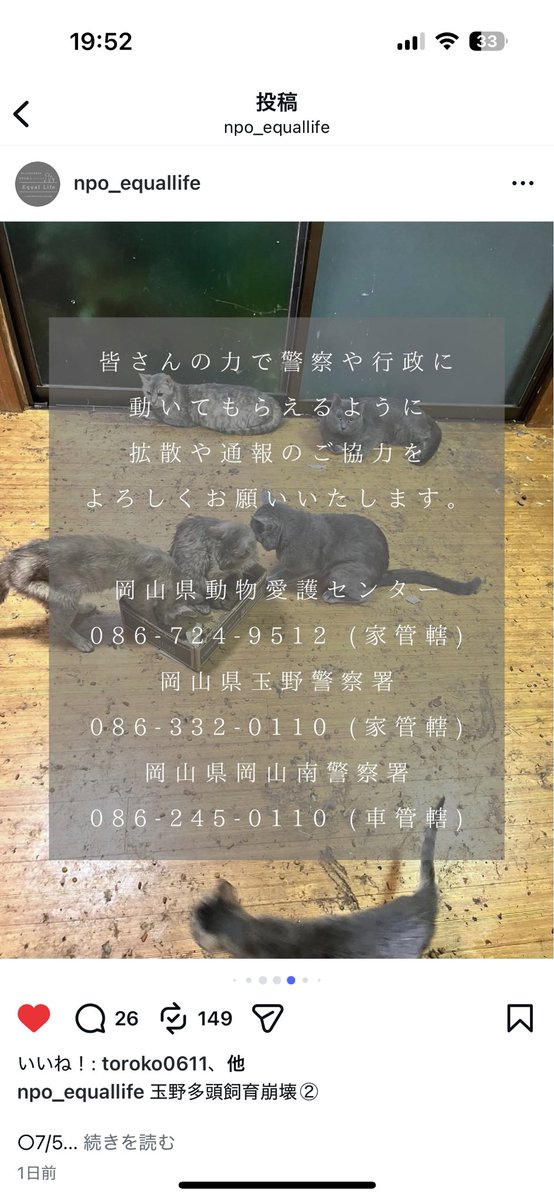 19:52
33
投稿
npo_equallife
Equal Life
npo_equallife
皆さんの力で警察や行政に
動いてもらえるように
拡散や通報のご協力を
よろしくお願いいたします。
岡山県動物愛護センター
086-724-9512 (家管轄)
岡山県玉野警察署
086-332-0110 (家管轄)
岡山県岡山南警察署
086-245-0110 (車管轄)
26
149
いいね！: toroko0611、他
npo_equallife 玉野多頭飼育崩壊②
〇7/5... 続きを読む
1日前